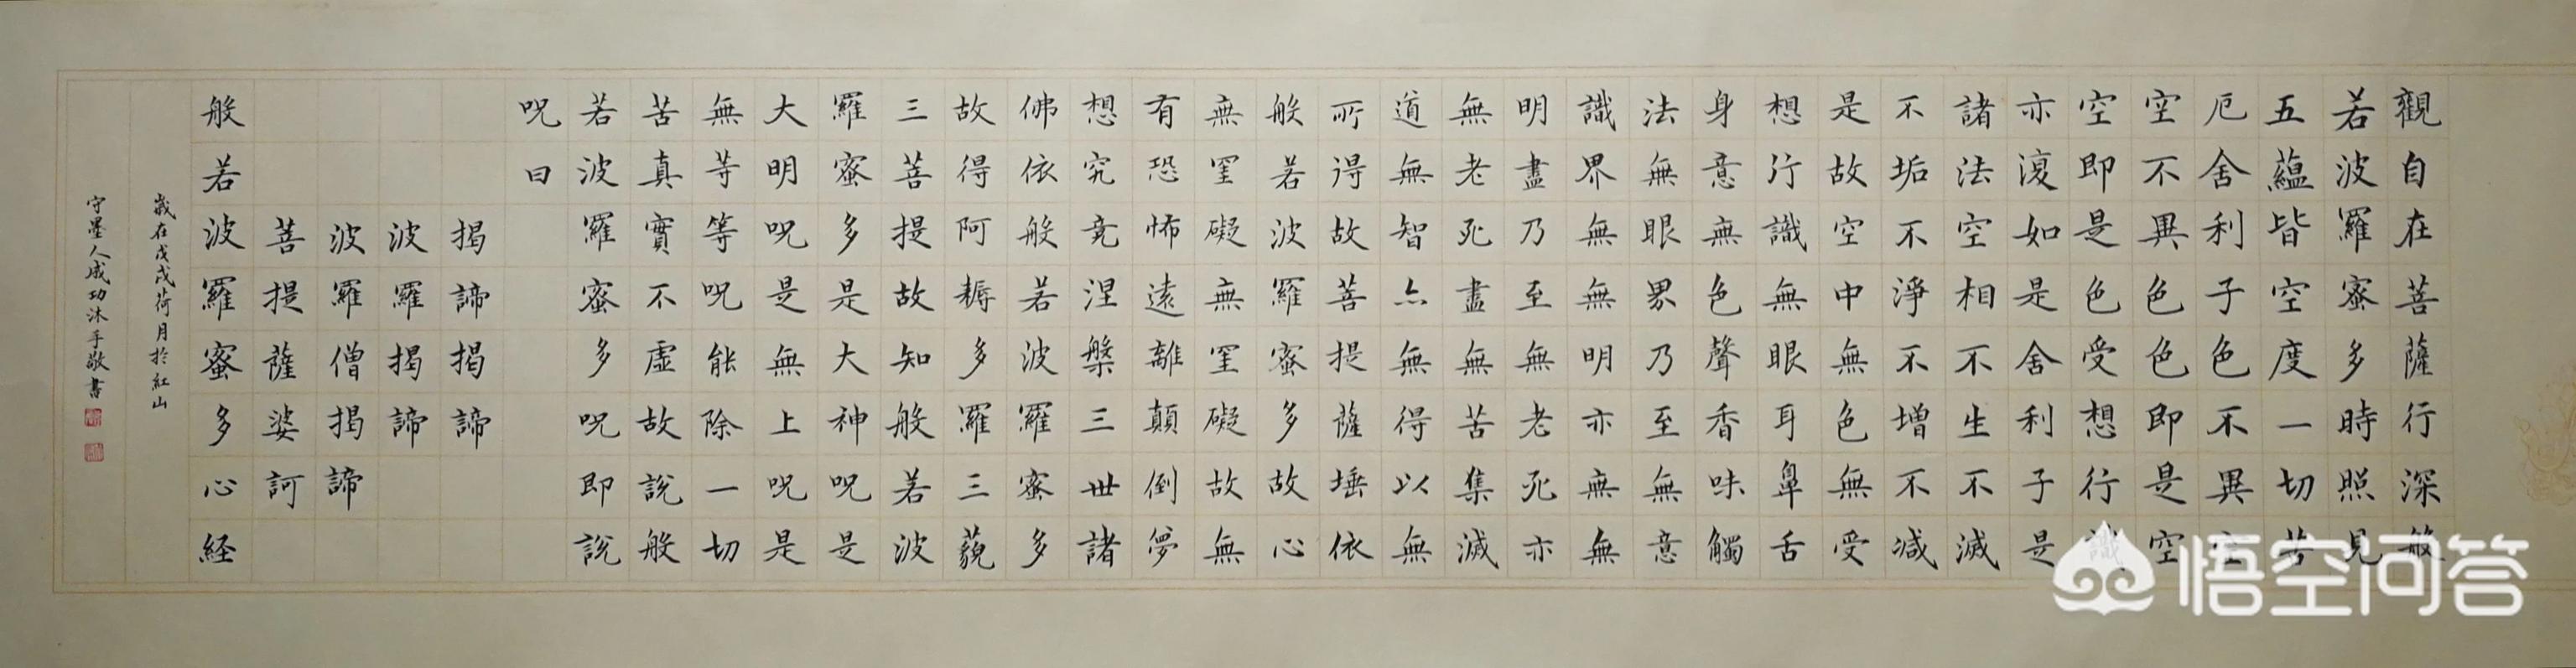 觀自在菩薩行深般
若波羅蜜多時照見
五蘊皆空度一切苦
厄舍利子色不異空
空不異色色即是空
空即是色受想行識
亦復如是舍利子是
諸法空相不生不滅
不垢不淨不增不減
是故空中無色無受
想行識無眼耳鼻舌
身意無色聲香味觸
法無眼界乃至無意
識界無無明亦無無
明盡乃至無老死亦
無老死盡無苦集滅
道無智亦無得以無
所得故菩提薩埵依
般若波羅蜜多故心
無罣礙無罣礙故無
有恐怖遠離顛倒夢
想究竟涅槃三世諸
佛依般若波羅蜜多
故得阿耨多羅三藐
三菩提故知般若波
羅蜜多是大神呪是
大明呪是無上呪是
無等等呪能除一切
苦真實不虛故說般
若波羅蜜多呪即說
呪曰
揭諦揭諦
波羅揭諦
波羅僧揭諦
菩提薩婆訶
般若波羅蜜多心経
歲在戊戌荷月於紅山
守墨人成功沐手敬書
悟空问答